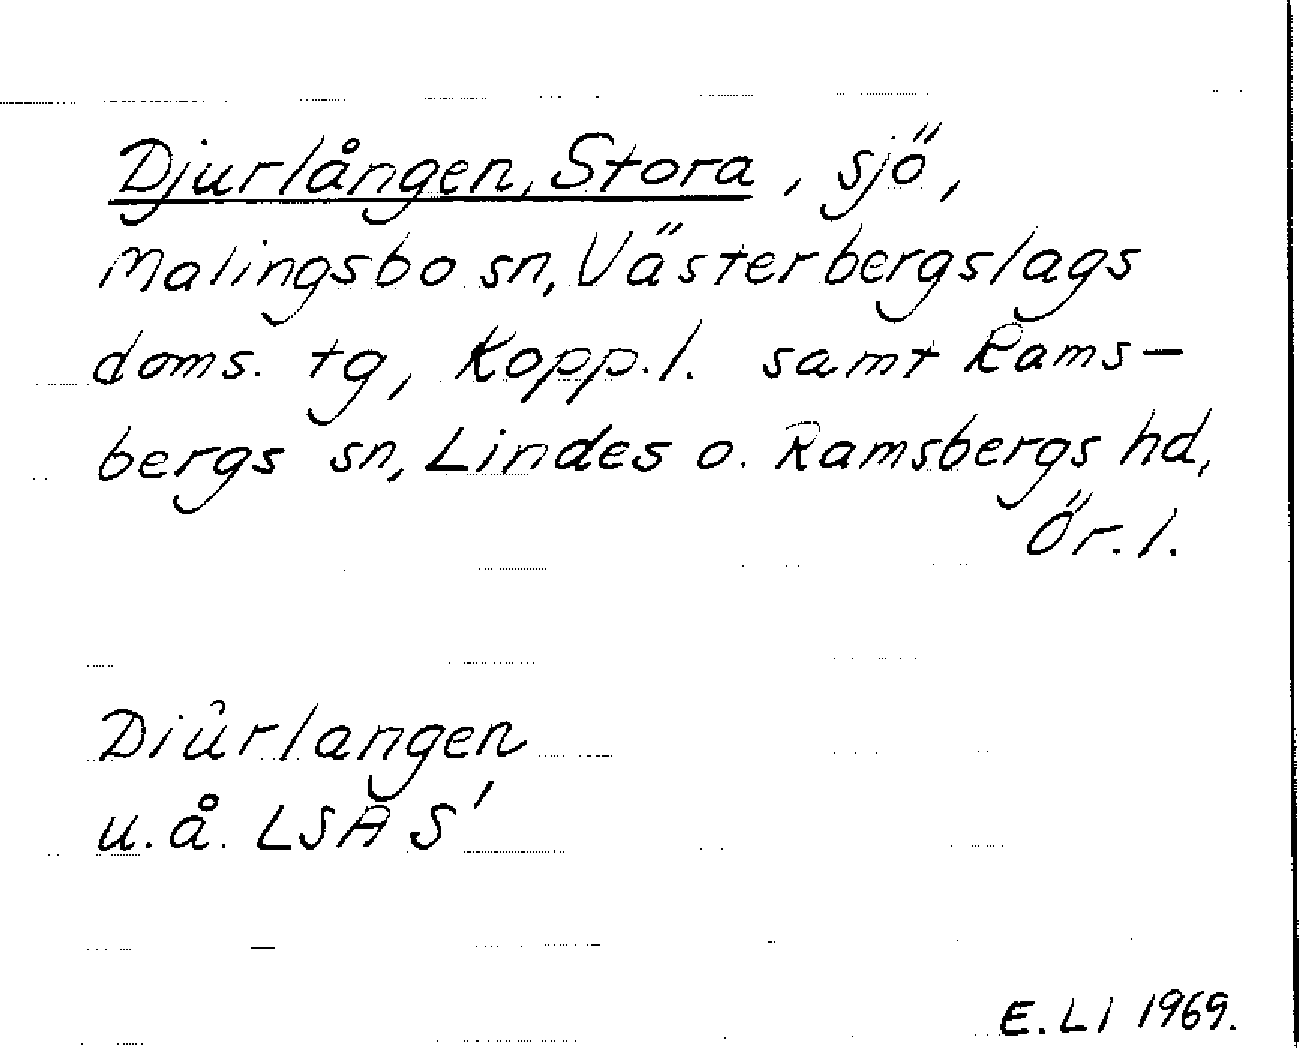 Djurlången, Stora, sjö,
Malingsbo sn, Västerbergslags
doms. tg, Kopp. l. samt Rams-
bergs sn, Lindes o. Ramsbergs hd,
Ör. l.
Diůrlangen
u. å. LSA S'
E. Li 1969.